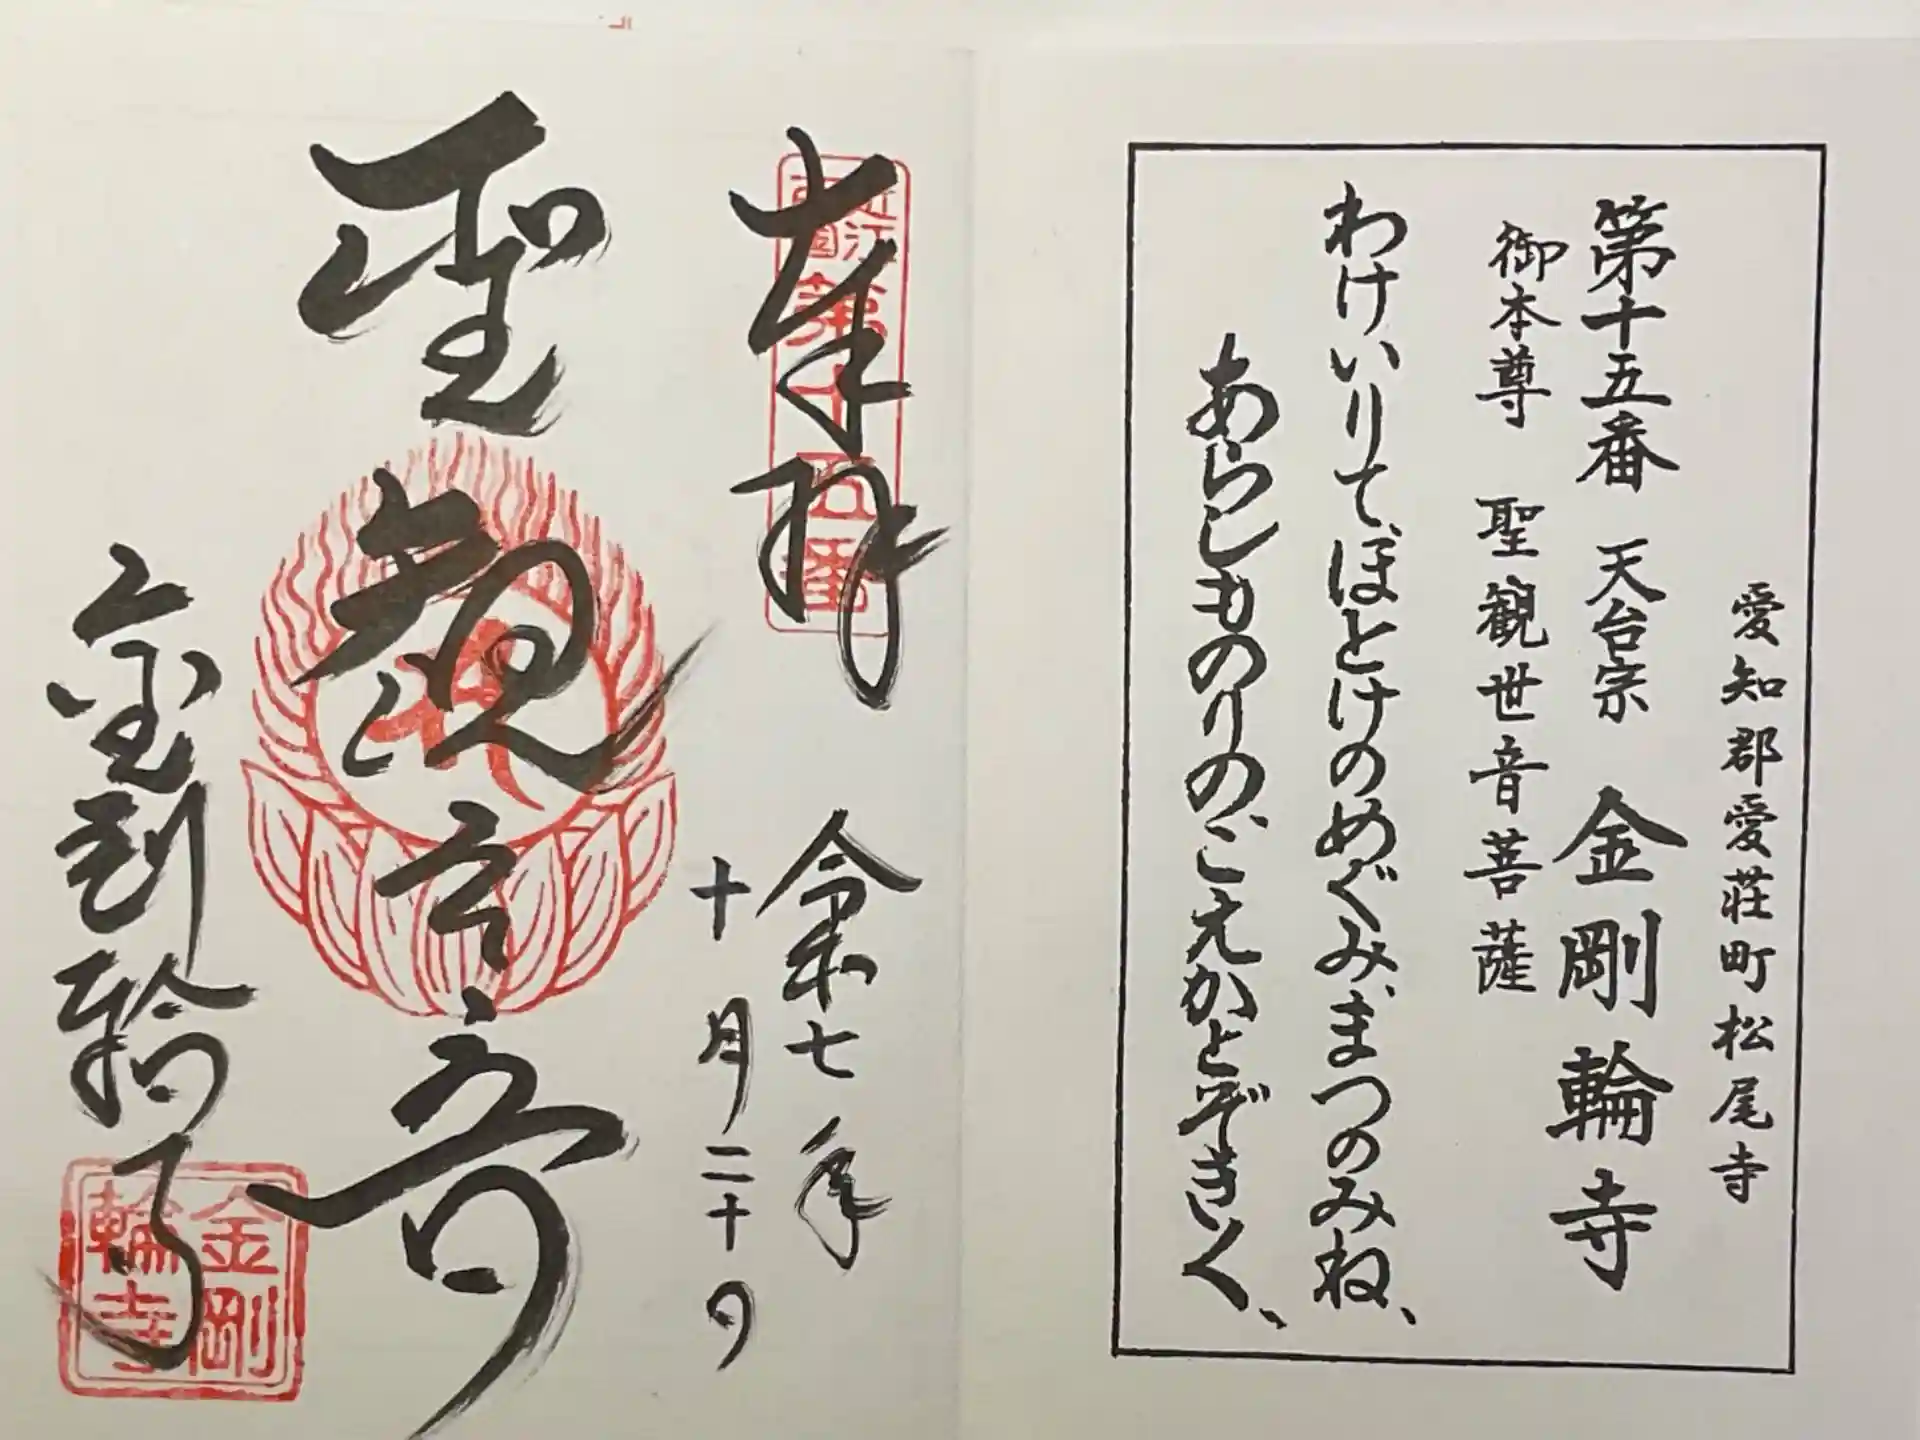 愛知郡愛荘町松尾寺
第十五番 天台宗 金剛輪寺
御本尊 聖観世音菩薩
わけいりてほとけのめぐみまつのみね、
あらしものりのこえかとぞきく、
奉拝
近江
西国
第十五番
令和七年
十月二十日
聖観世音
金剛輪寺
金剛
輪寺